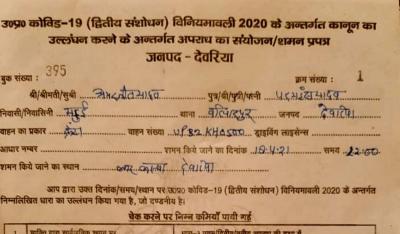 उ०प्र० कोविड-19 (द्वितीय संशोधन) विनियमावली 2020 के अन्तर्गत कानून का
उल्लंघन करने के अन्तर्गत अपराध का संयोजन/शमन प्रपत्र
जनपद - देवरिया
बुक संख्या : 395 क्रम संख्या : 1
श्री/श्रीमती/सुश्री पुत्र/श्री/पुत्री/पत्नी
निवासी/निवासिनी थाना जनपद देवरिया
वाहन का प्रकार वाहन संख्या UP52 ड्राइविंग लाइसेन्स
आधार नम्बर शमन किये जाने का दिनांक 18.4.21 समय 12:00
शमन किये जाने का स्थान देवरिया
आप द्वारा उक्त दिनांक/समय/स्थान पर उ०प्र० कोविड-19 (द्वितीय संशोधन) विनियमावली 2020 के अन्तर्गत
निम्नलिखित धारा का उल्लंघन किया गया है, जो दण्डनीय है।
चेक करने पर निम्न कमियाँ पायी गई